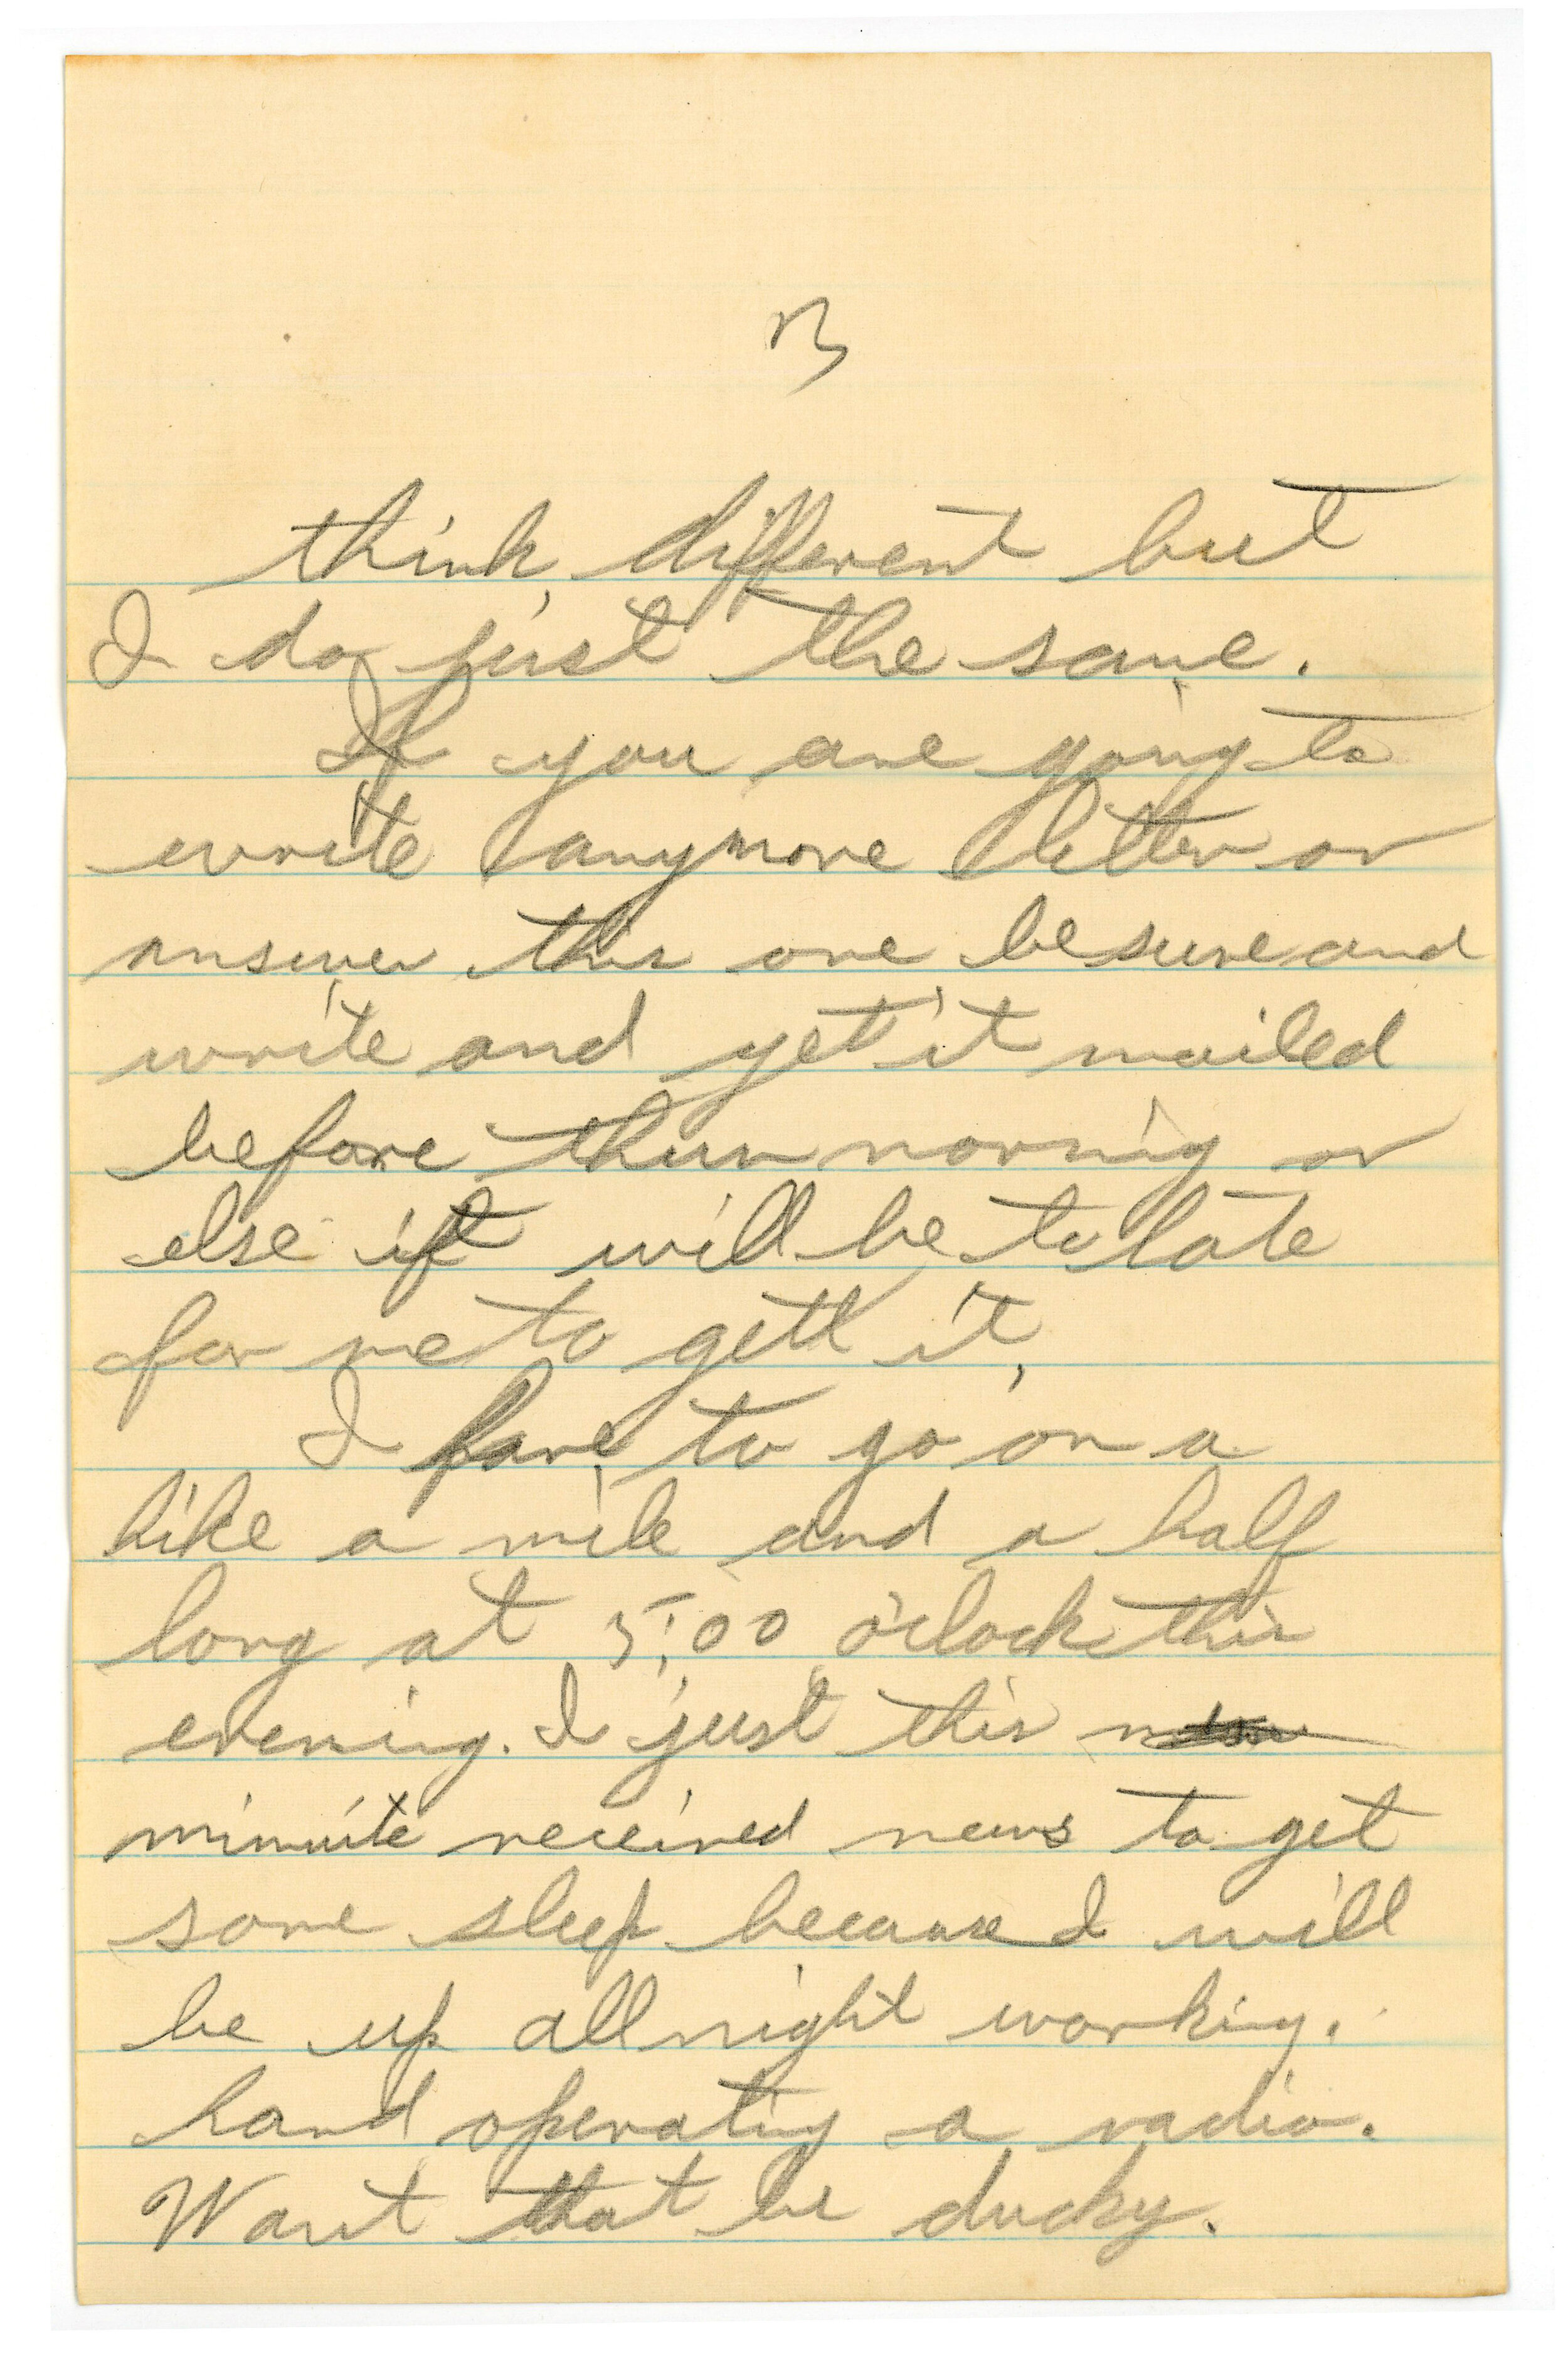 3
think different but
I do just the same.
If you are going to
write anymore letter or
answer this one be sure and
write and get it mailed
before thur morning or
else it will be to late
for me to gett it,
I have to go on a
hike a mile and a half
long at 5:00 o'clock this
evening. I just this
minuite received news to get
some sleep because I will
be up all night working.
hand operating a radio.
Want that be ducky.